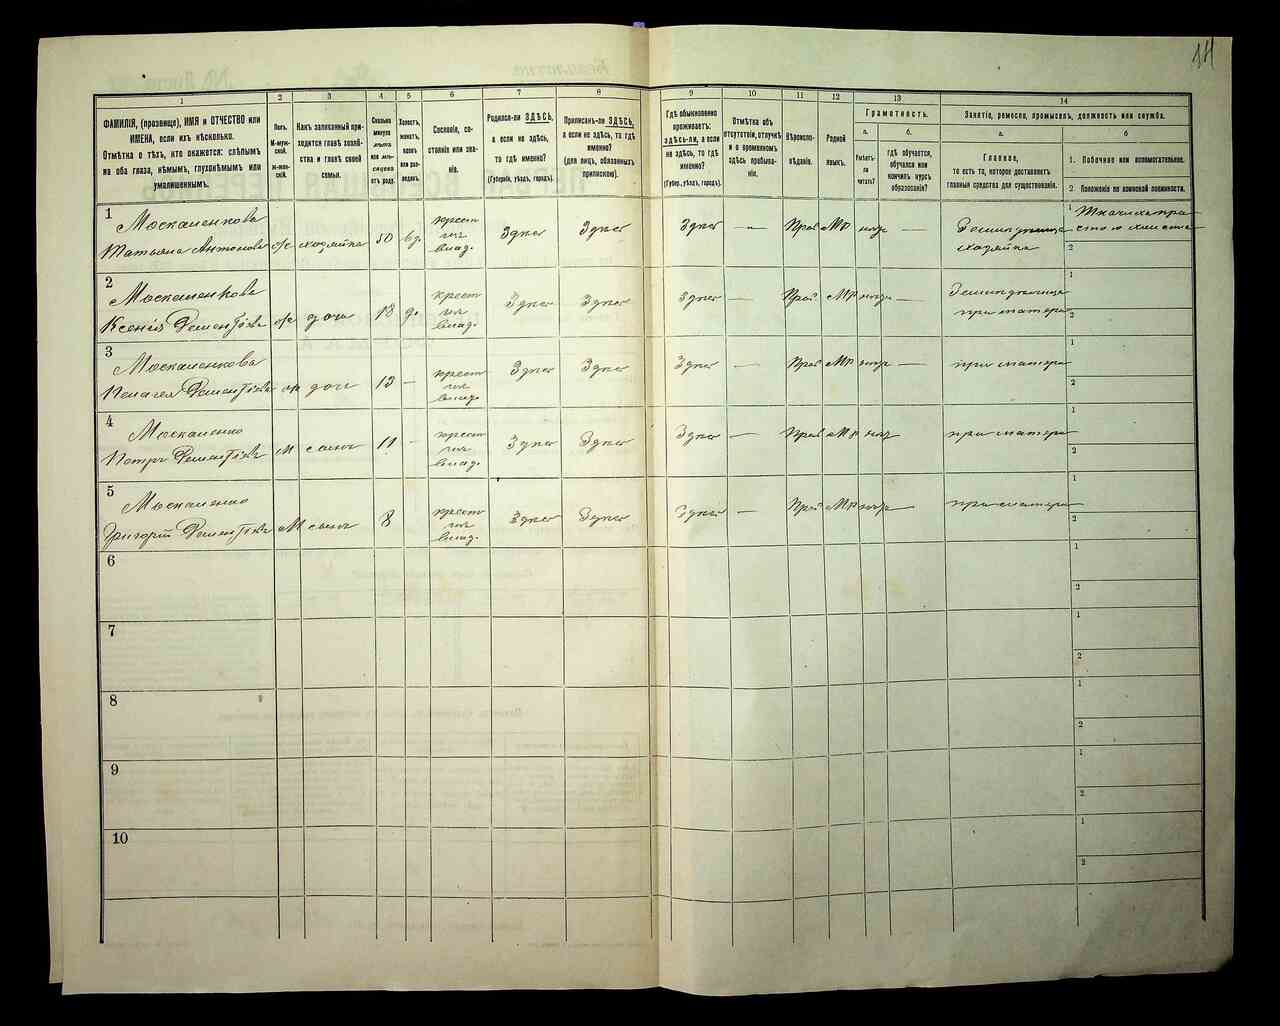 14
1
2
3
4
5
6
7
8
9
10
11
12
13
14
ФАМИЛІЯ, (прозвище), ИМЯ и ОТЧЕСТВО или
ИМЕНА, если ихъ нѣсколько.
Отмѣтка о тѣхъ, кто окажется: слѣпымъ
на оба глаза, нѣмымъ, глухонѣмымъ или
умалишеннымъ.
Полъ.
М-мужской.
Ж-женскій.
Какъ записанный приходится
главѣ хозяйства
и главѣ своей
семьи.
Сколько
минуло
лѣтъ
или мѣсяцевъ
отъ роду.
Холостъ,
женатъ,
вдовъ
или разведенъ.
Сословіе, состояніе
или званіе.
Родился-ли ЗДѢСЬ,
а если не здѣсь,
то гдѣ именно?
(Губернія, уѣздъ, городъ).
Приписанъ-ли ЗДѢСЬ,
а если не здѣсь, то гдѣ
именно?
(для лицъ, обязанныхъ
припискою).
Гдѣ обыкновенно
проживаетъ:
здѣсь-ли, а если
не здѣсь, то гдѣ
именно?
(Губерн., уѣздъ, городъ).
Отмѣтка объ
отсутствіи, отлучкѣ
и о временномъ
здѣсь пребываніи.
Вѣроисповѣданіе.
Родной
языкъ.
Грамотность.
а.
б.
Умѣетъ-ли
читать?
гдѣ обучается,
обучался или
кончилъ курсъ
образованія?
Занятіе, ремесло, промыселъ, должность или служба.
а.
б
Главное,
то есть то, которое доставляетъ
главныя средства для существованія.
1. Побочное или вспомогательное.
2. Положеніе по воинской повинности.
1 Москаленкова
Татьяна Антонова ж хозяйка 50 вд. крест из влад. Здесь Здесь Здесь — Прав МР негр — Земледелица хозяйка
1 Ткачиха простого холста
2
2 Москаленкова
Ксенія Дементіева ж дочь 18 д. крест из влад. Здесь Здесь Здесь — Прав МР негр — Земледелица при матери
1
2
3 Москаленкова
Пелагея Дементіева ж дочь 13 — крест из влад. Здесь Здесь Здесь — Прав МР негр при матери
1
2
4 Москаленко
Петръ Дементіевъ М сынъ 11 — крест из влад. Здесь Здесь Здесь — Прав МР негр при матери
1
2
5 Москаленко
Григорій Дементіевъ М сынъ 8 крест из влад. Здесь Здесь Здесь — Прав МР негр при матери
1
2
6
1
2
7
1
2
8
1
2
9
1
2
10
1
2